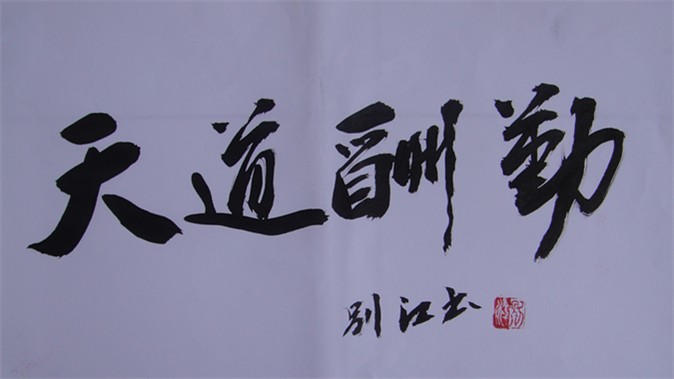 天道酬勤
别江书